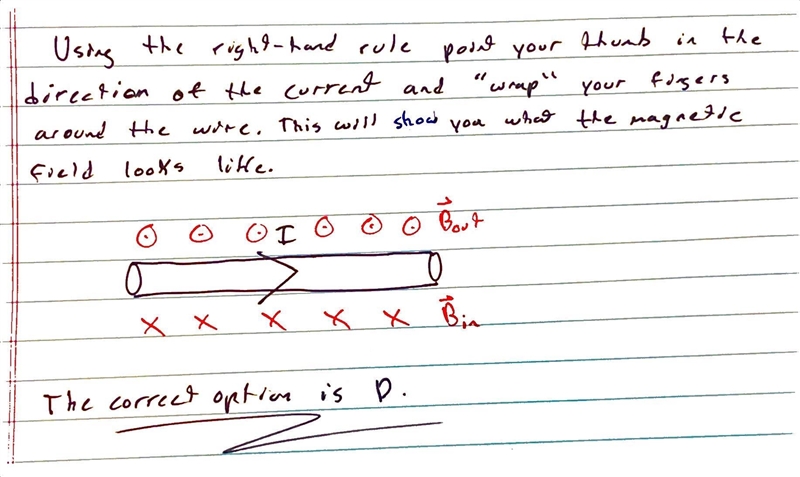 Using the right-hand rule point your thumb in the
direction of the current and "wrap" your fingers
around the wire. This will show you what the magnetic
field looks like.
I B⃗out
x x x x x B⃗in
The correct option is D.